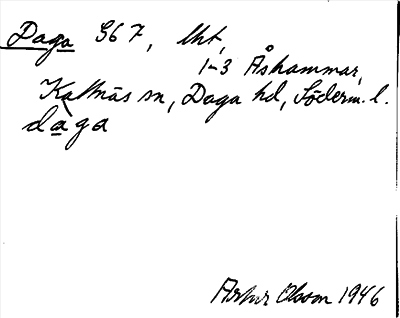 Daga S67, lht,
1-3 Åshammar,
Kattnäs sn, Daga hd, Söderm. l.
daga
Artur Olsson 1946